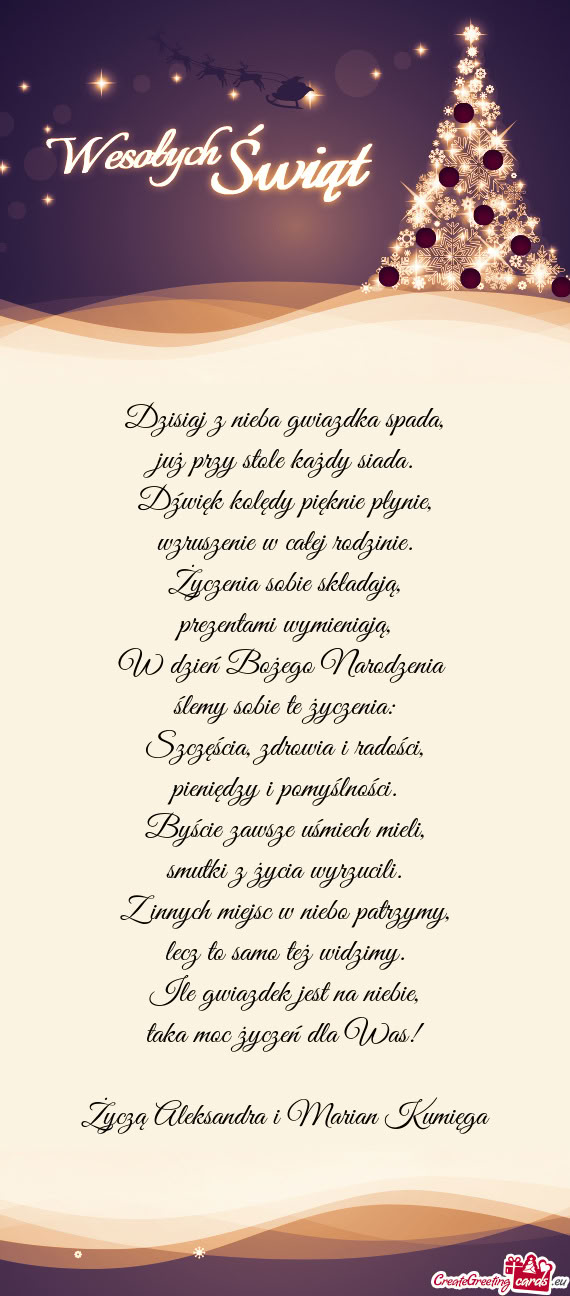 Wesołych Świąt
Dzisiaj z nieba gwiazdka spada,
już przy stole każdy siada.
Dźwięk kolędy pięknie płynie,
wzruszenie w całej rodzinie.
Życzenia sobie składają,
prezentami wymieniają,
W dzień Bożego Narodzenia
ślemy sobie te życzenia:
Szczęścia, zdrowia i radości,
pieniędzy i pomyślności.
Byście zawsze uśmiech mieli,
smutki z życia wyrzucili.
Z innych miejsc w niebo patrzymy,
lecz to samo też widzimy.
Ile gwiazdek jest na niebie,
taka moc życzeń dla Was!
Życzą Aleksandra i Marian Kumięga
CreateGreetingcards.eu